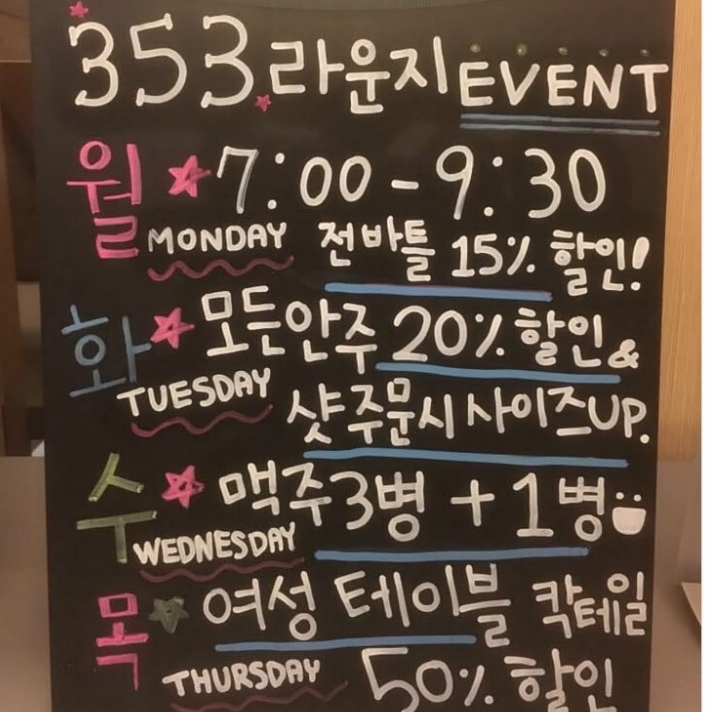 353 라운지 EVENT
월 7:00-9:30
MONDAY 전바틀 15% 할인!
화 모든안주 20% 할인 &
TUESDAY 샷주문시 사이즈UP.
수 맥주3병 + 1병
WEDNESDAY
목 여성 테이블 칵테일
THURSDAY 50% 할인